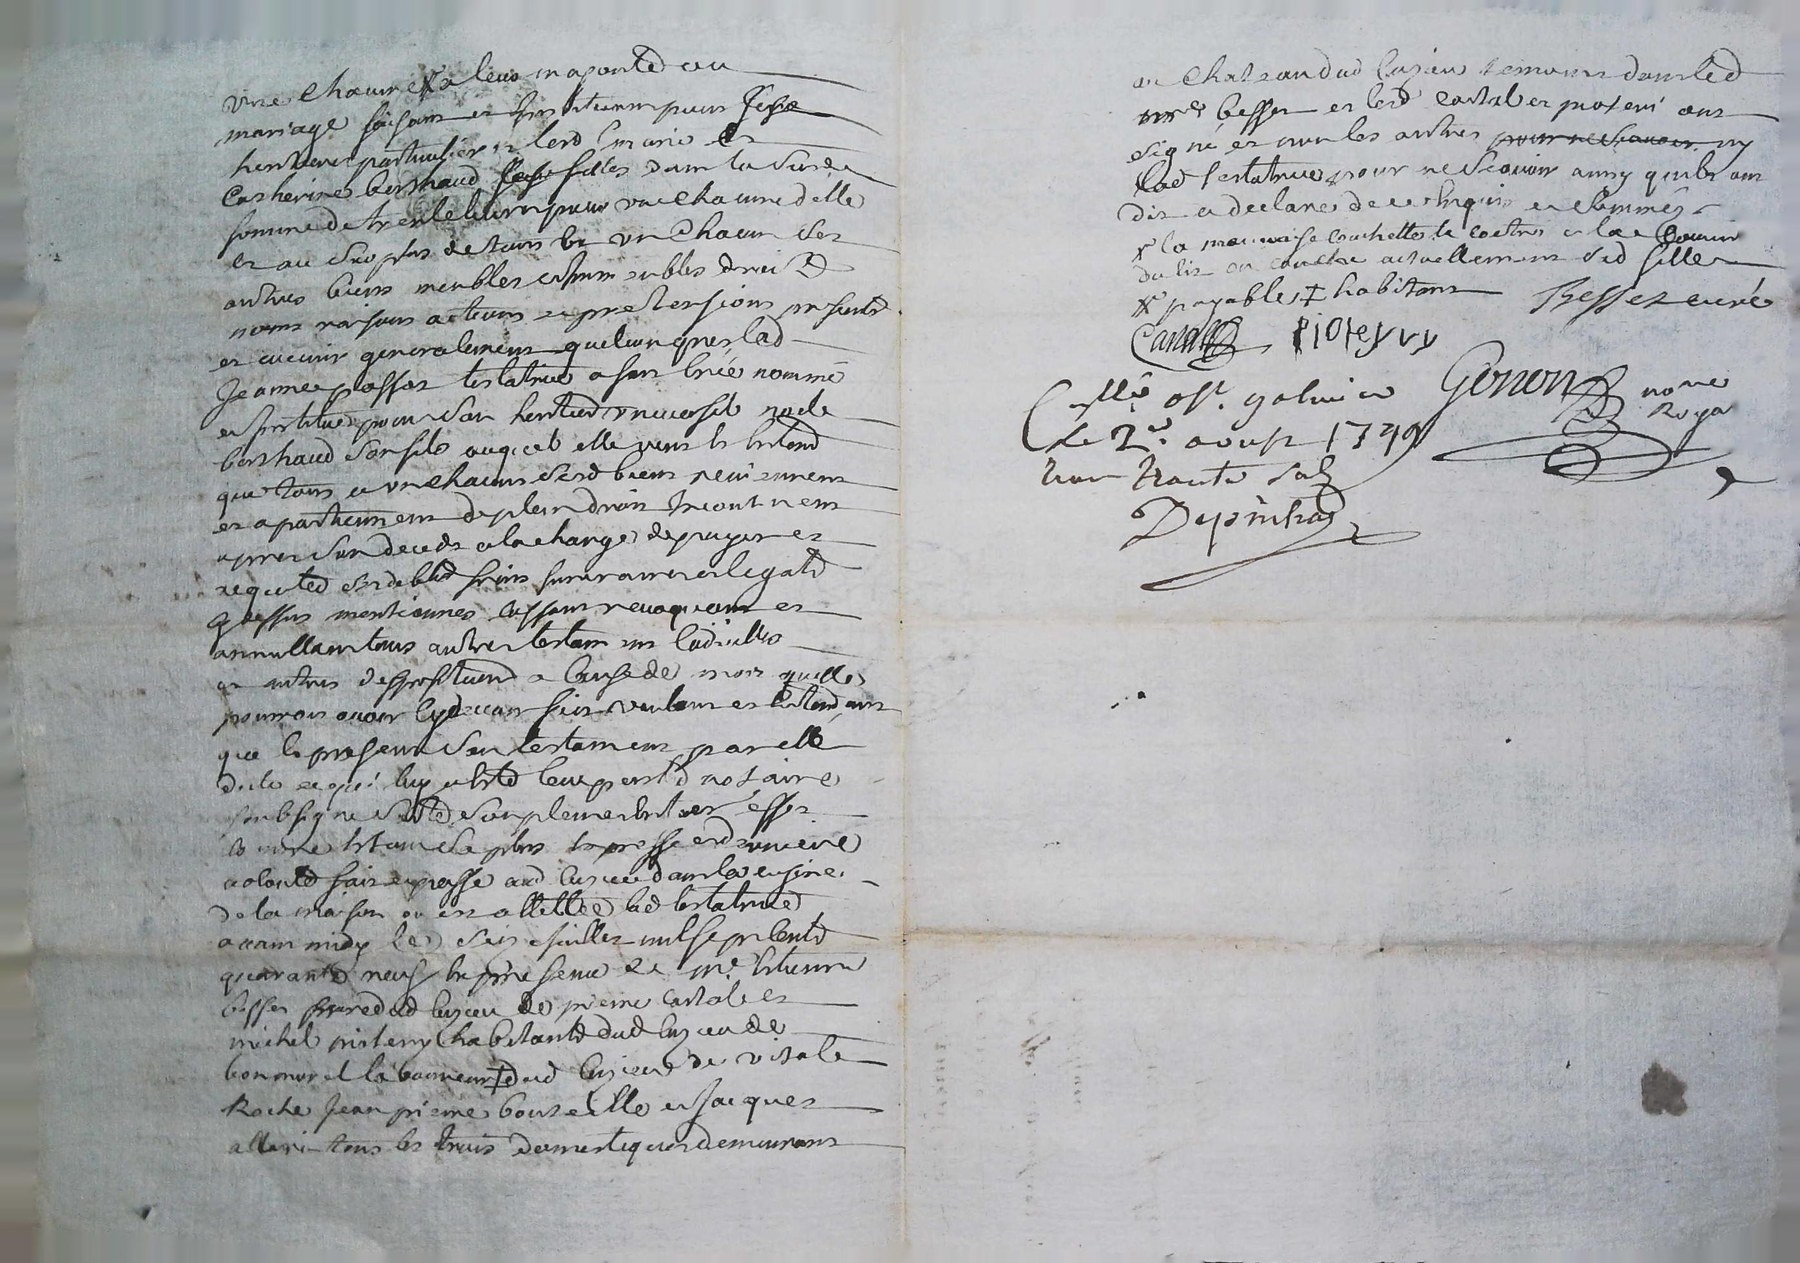 une chacune a leur majorité ou
mariage faisant et instituant pour ses
heritieres particulieres lesd marie et
Catherine berthaud ses filles dans la susde
somme de trente livres pour une chacune delle
et au surplus de tous et un chacun ses
autres biens meubles immeubles droits
noms raisons actions et pretensions presents
et avenir generalement quelconques lad
Jeanne testatrice a fait créé nommé
et institué pour son heritier universel
berthaud son fils auquel elle veut et entend
que tous et un chacuns sesd biens reviennent
et apartiennent de plein droit incontinent
apres son deceds a la charge de payer et
aquiter ses debtes frais funeraires et legats
cydessus mentionnes cassant revoquant et
annullant tous autres testamens codicilles
et autres dispositions a cause de mort quelle
pourroit avoir cydevant fait voulant et entendant
que le present son testament par elle
dicté et qui luy a été leu par led notaire
soubsigné sorte son plein et entier effet
comme etant sa plus expresse et derniere
volonté fait et passé aud Cuzieu dans la cuisine
de la maison ou est allittée lad testatrice
avant midy le six juillet mil sept cents
quarante neuf en presence de mre Etienne
besset curé dud Cuzieu de pierre Castal et
michel pioteyry habitants dud Cuzieu de
laboureur dud Cuzieu de vitale
Roche Jean pierre bouteille et Jacques
tous les trois domestiques demeurans
au Chateau dud Cuzieu temoins dont led
mre besset et lesd Castal et pioteri ont
signé et non les autres ny
lad testatrice pour ne scavoir ainsy quils ont
dit et declaré de ce enquis et sommés
la mauvaise couchette le coetres et la
du lit ou couche actuellement sesd filles
payable ‡ habitant Besset curé
Castal Pioteyry
Cllé a st galmier Genon nore
le 2e aoust 1749 Royal
Recu trante sols